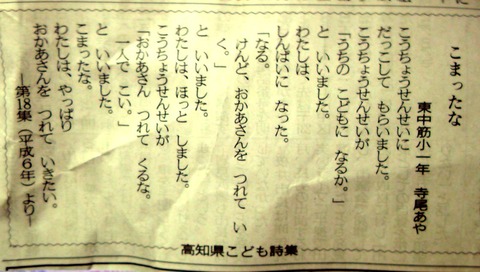 こまったな
東中筋小一年 寺尾あや
こうちょうせんせいに
だっこして もらいました。
こうちょうせんせいが
「うちの こどもに なるか。」
と いいました。
わたしは、
しんぱいに なった。
「なる。
けんど、おかあさんを つれて い
く。」
と いいました。
わたしは、ほっと しました。
こうちょうせんせいが
「おかあさん つれて くるな。
一人で こい。」
と いいました。
こまったな。
わたしは、やっぱり
おかあさんを つれて いきたい。
―第18集(平成6年)より―
高知県こども詩集